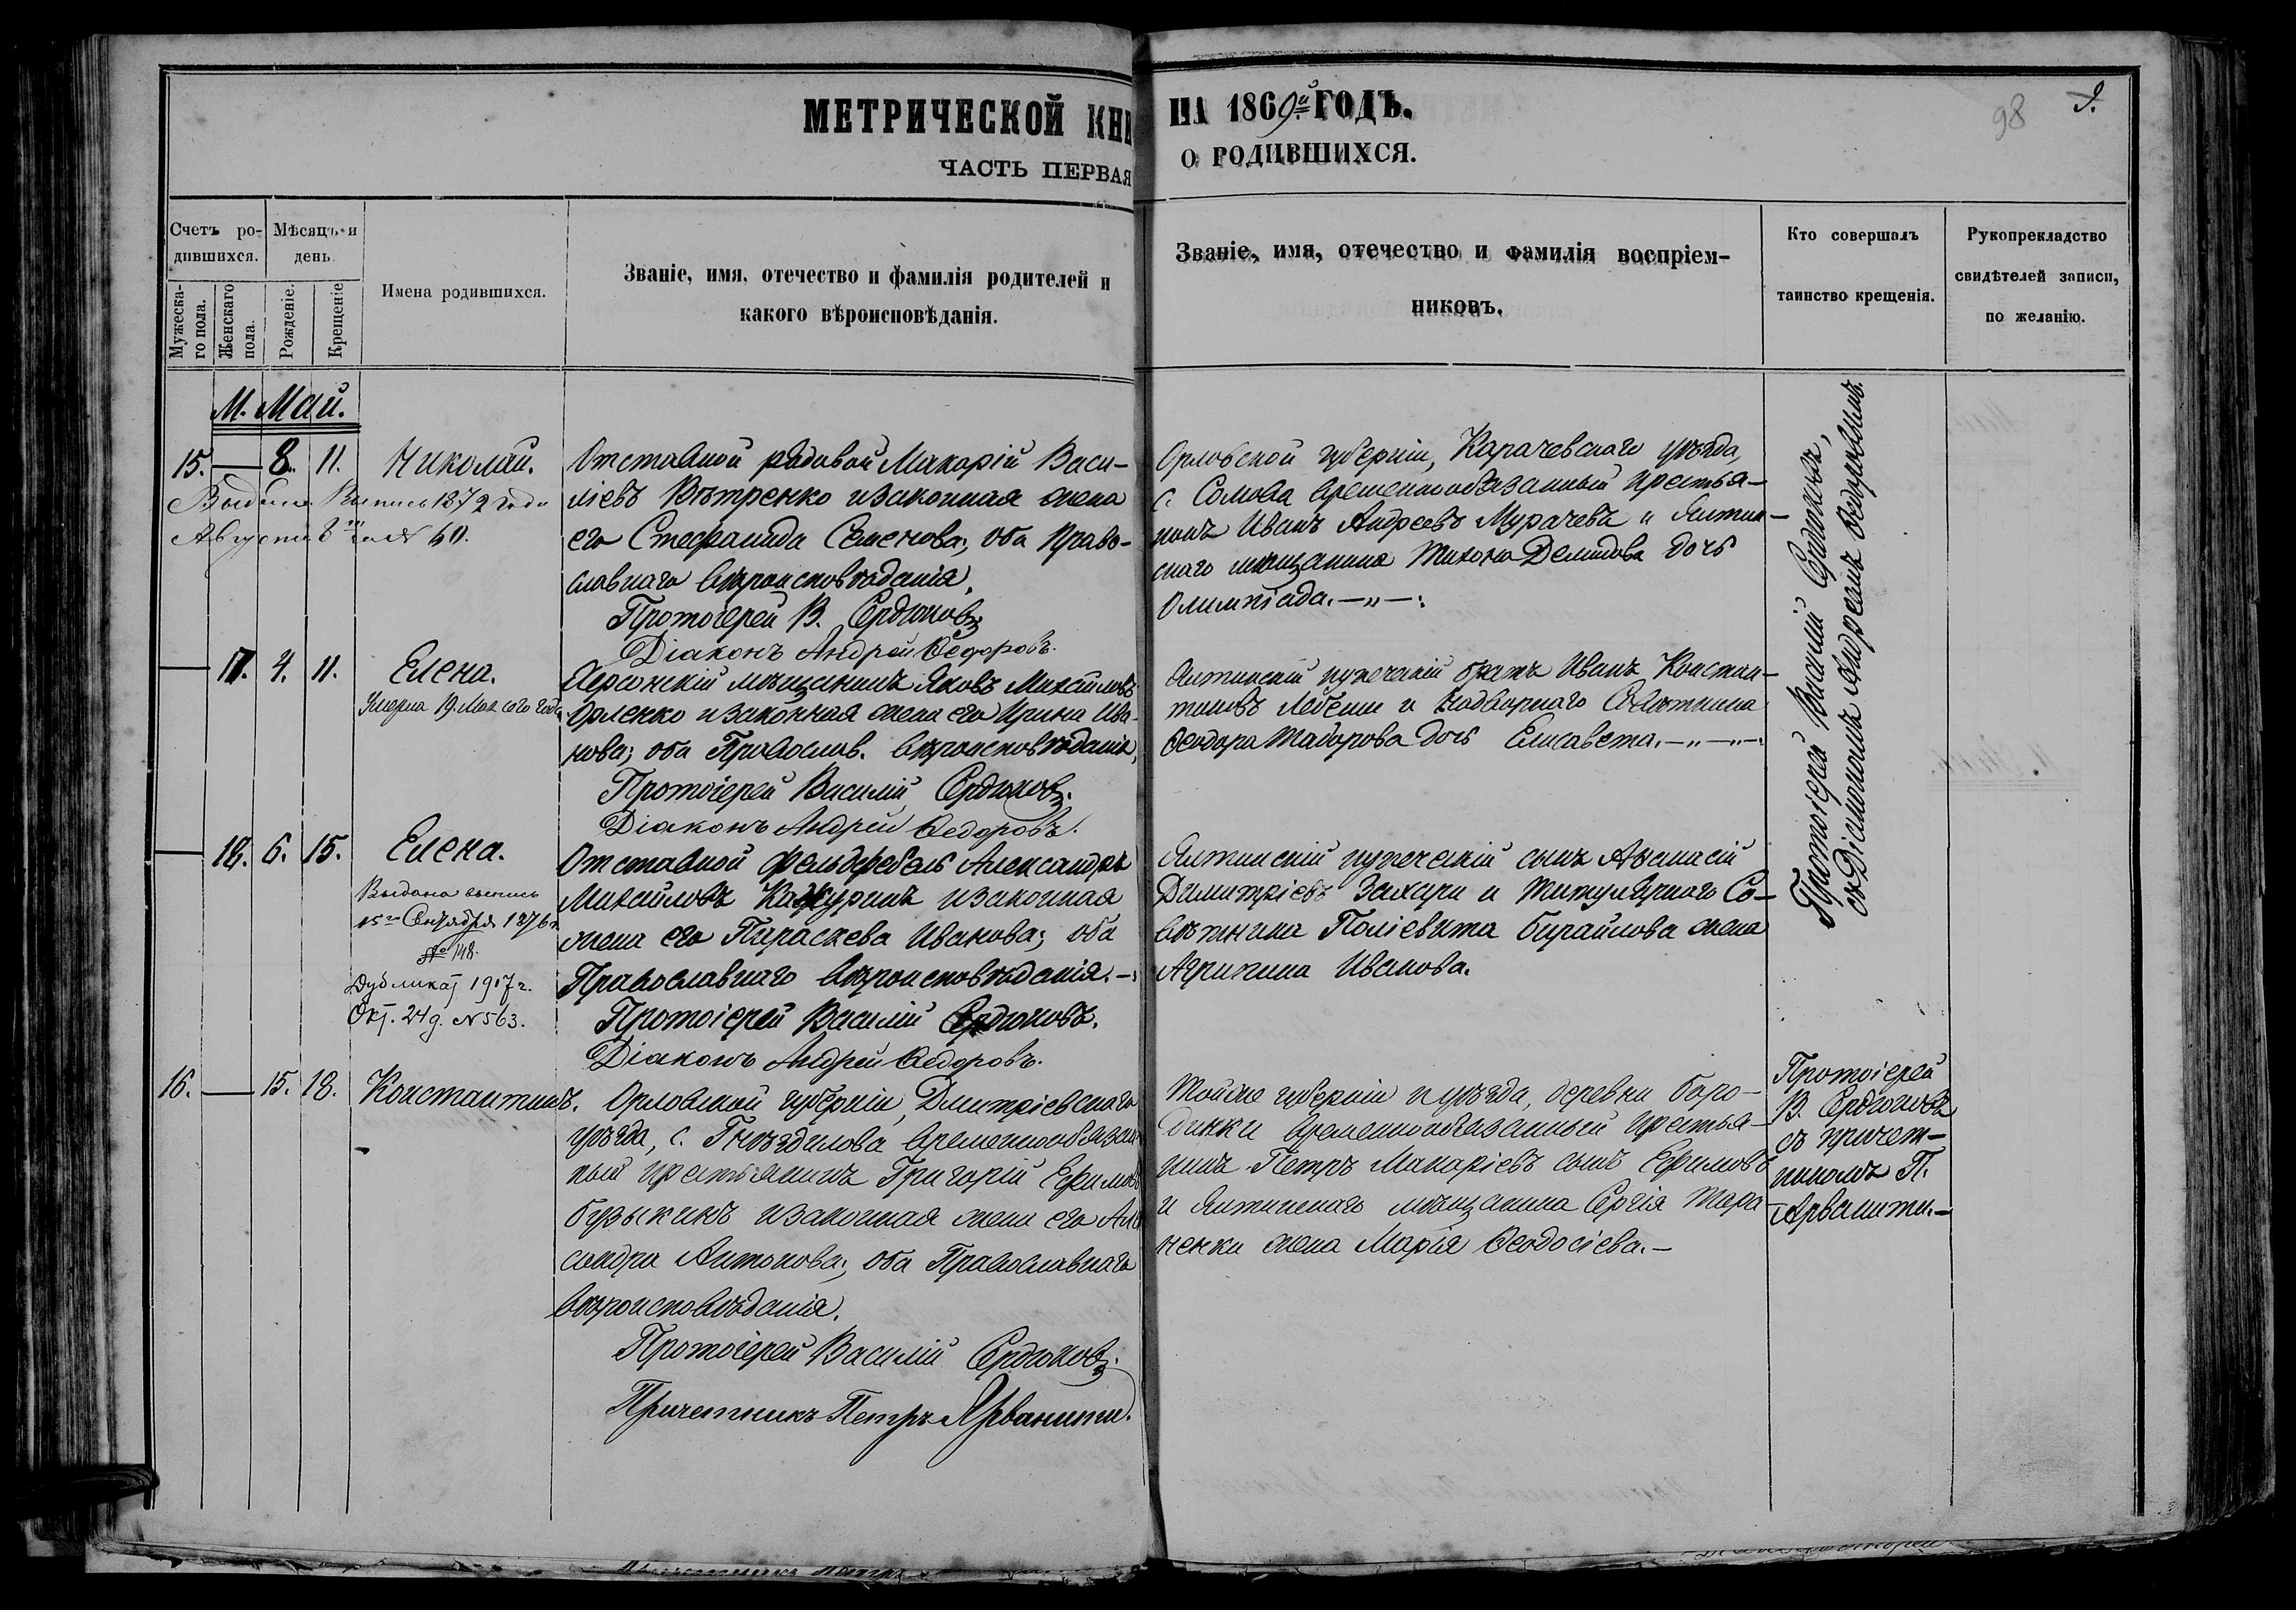 МЕТРИЧЕСКОЙ КНИ
НА 1869й ГОДЪ.
98
9.
ЧАСТЬ ПЕРВАЯ
О РОДИВШИХСЯ.
Счетъ ро-
дившихся.
Мужеска-
го пола.
Женскаго
пола.
Мѣсяцъ и
день.
Рожденіе.
Крещеніе
Имена родившихся.
Званіе, имя, отечество и фамилія родителей и
какого вѣроисповѣданія.
Званіе, имя, отечество и фамилія воспріем-
никовъ.
Кто совершалъ
таинство крещенія.
Рукоприкладство
свидѣтелей записи,
по желанію.
М. Май.
15. — 8. 11. Николай.
Выдана Выпись 1872 года
Августа 8го № 60.
Отставной рядовой Макарій Васи-
ліевъ Вѣтренко изаконная жена
его Стефанида Семенова; оба Право-
славнаго вѣроисповѣданія.
Протоіерей В. Сердюковъ
Діаконъ Андрей Ѳедоровъ.
Орловской губерніи, Карачевскаго уѣзда,
с. Сомова временнообязанный крестья-
нинъ Иванъ Андреевъ Мурачевъ и Ялтин-
скаго мѣщанина Тихона Демидова дочь
Олимпіада. —„—:
— 17. 4. 11. Елена.
Умерла 19. Мая сего года
Херсонскій мѣщанинъ Яковъ Михайловъ
Орленко изаконная жена его Ирина Ива-
нова; оба Православ. вѣроисповѣданія,
Протоіерей Василій Сердюковъ.
Діаконъ Андрей Ѳедоровъ.
Ялтинскій купеческій братъ Иванъ Констан-
тиновъ Лебеши и Надворнаго Совѣтника
Ѳеодора Майорова дочь Елисавета. —„—„—
— 18. 6. 15. Елена.
Выдана выпись
15го Сентября 1876 г.
№ 148.
Дубликат 1917 г.
Окт. 24 д. № 563.
Отставной фельдфебель Александръ
Михайловъ Кажуринъ изаконная
жена его Параскева Иванова; оба
Православнаго вѣроисповѣданія. —:
Протоіерей Василій Сердюковъ.
Діаконъ Андрей Ѳедоровъ.
Ялтинскій купеческій сынъ Аѳанасій
Димитріевъ Захари и Титулярнаго Со-
вѣтника Поліевкта Бурайлова жена
Агрипина Иванова.
Протоіерей Василій Сердюковъ,
съ Діакономъ Андреемъ Ѳедоровымъ.
16. — 15. 18. Константинъ.
Орловской губерніи, Дмитріевскаго
уѣзда, с. Гнѣздилова временнообязан
ный крестьянинъ Григорій Ефимовъ
Бузыкинъ изаконная жена его Алек
сандра Антонова; оба Православнаго
вѣроисповѣданія.
Протоіерей Василій Сердюковъ.
Причетникъ Петръ Арванити.
Тойже губерніи и уѣзда, деревни Боро-
динки временнообязанный крестья-
нинъ Петръ Макаріевъ сынъ Ефимовъ
и Ялтинскаго мѣщанина Сергія Тара
ненки жена Марія Ѳеодосіева. —
Протоіерей
В. Сердюковъ
съ причет-
никомъ П.
Арванити. —